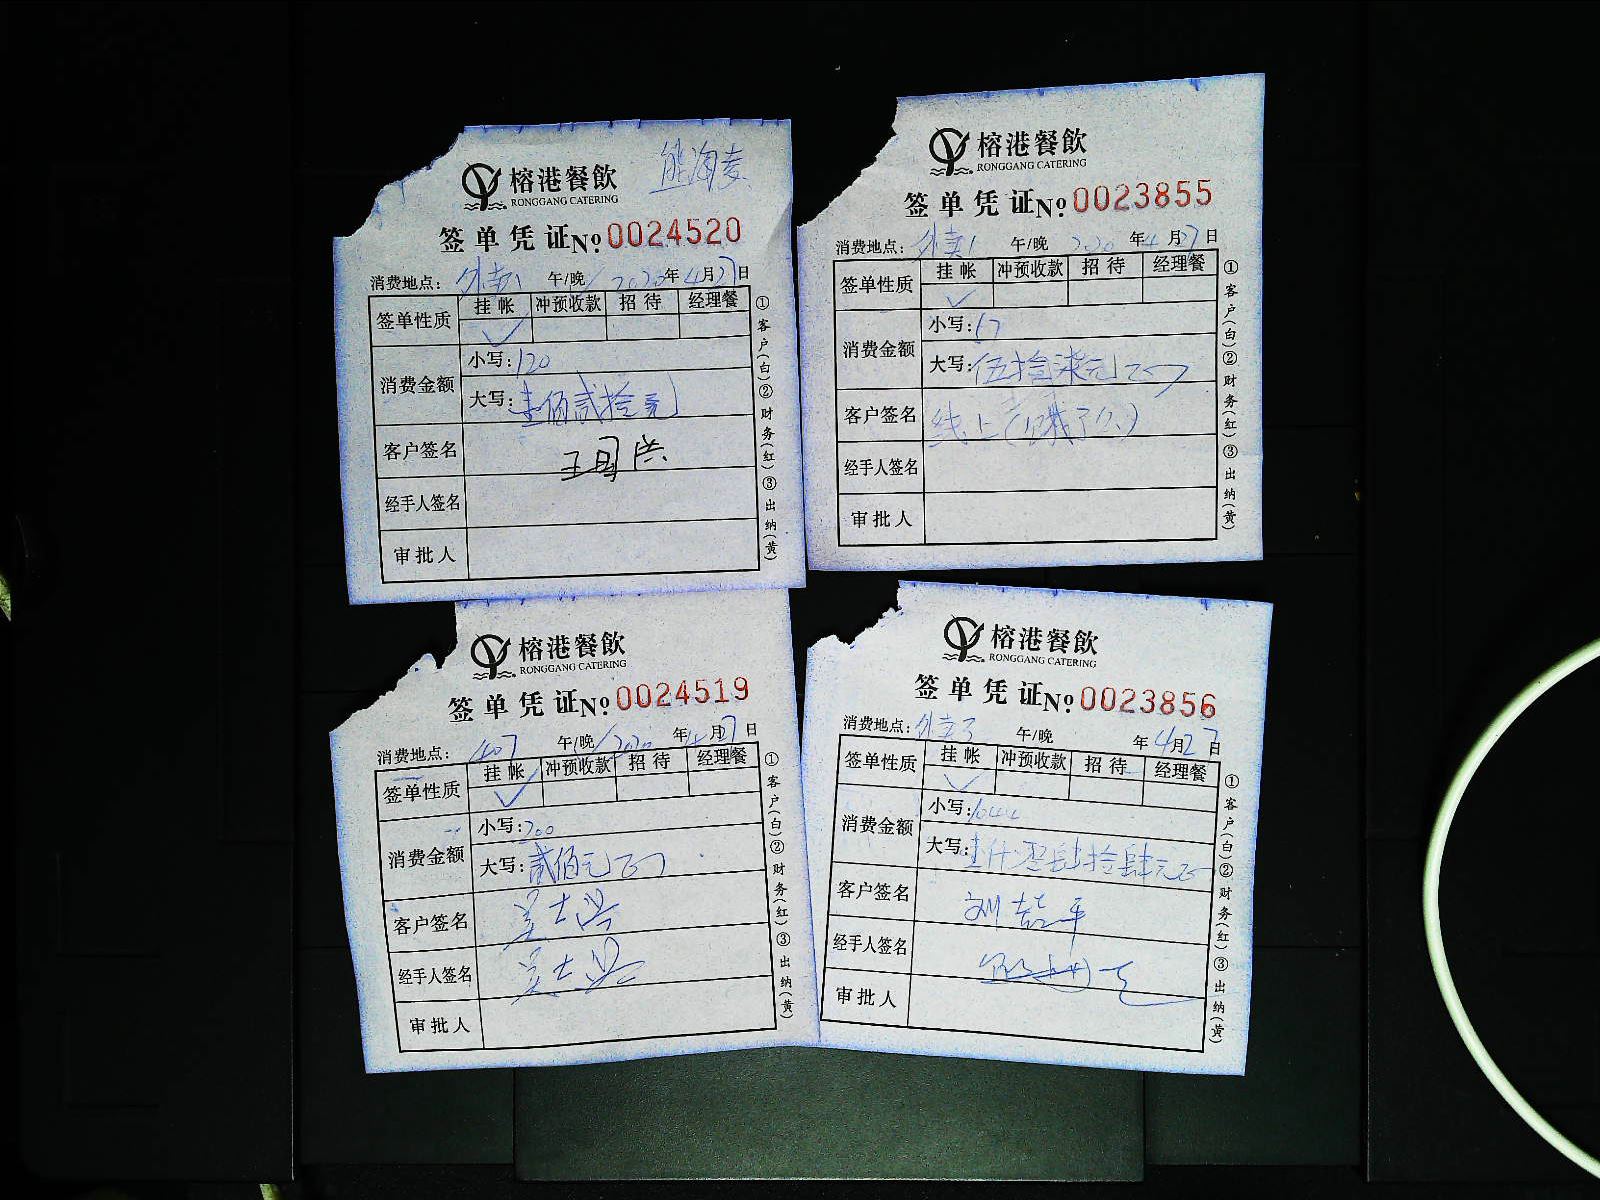 榕港餐飲
RONGGANG CATERING
签单凭证No.0024520
消费地点：外卖1 午/晚 2020年4月27日
签单性质 挂帐 冲预收款 招待 经理餐
✓
消费金额 小写：120
大写：壹佰贰拾元
客户签名
经手人签名
审批人
①客户(白)②财务(红)③出纳(黄)
榕港餐飲
RONGGANG CATERING
签单凭证No.0023855
消费地点：外卖1 午/晚 2020年4月27日
签单性质 挂帐 冲预收款 招待 经理餐
✓
消费金额 小写：57
大写：伍拾柒元正
客户签名 线上(饿了么)
经手人签名
审批人
①客户(白)②财务(红)③出纳(黄)
榕港餐飲
RONGGANG CATERING
签单凭证No.0024519
消费地点：407 午/晚 2020年4月27日
签单性质 挂帐 冲预收款 招待 经理餐
✓
消费金额 小写：200
大写：贰佰元正
客户签名
经手人签名
审批人
①客户(白)②财务(红)③出纳(黄)
榕港餐飲
RONGGANG CATERING
签单凭证No.0023856
消费地点：外卖3 午/晚 年4月27日
签单性质 挂帐 冲预收款 招待 经理餐
✓
消费金额 小写：1044
大写：壹仟零肆拾肆元正
客户签名
经手人签名
审批人
①客户(白)②财务(红)③出纳(黄)